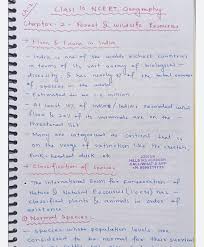 Class 10 NCERT Geography
Chapter - 2 - Forest & Wildlife Resources
Flora & Fauna in India
India is one of the world's richest countries
in terms of its vast array of biological
diversity & has nearly 8% of the total number
of species in the world
Estimated as 1.6 million
At least 10% of India's recorded wild
flora & 20% of its mammals are on the
threatened list
Many are categorised as critical that is
on the verge of extinction like the cheetah,
Pink-headed duck etc
Classification of Species
The International Union for Conservation of
Nature & Natural Resources (IUCN) has
classified plants & animals in order of
existence
Normal Species:
Species whose population levels are
considered to be normal for their survival